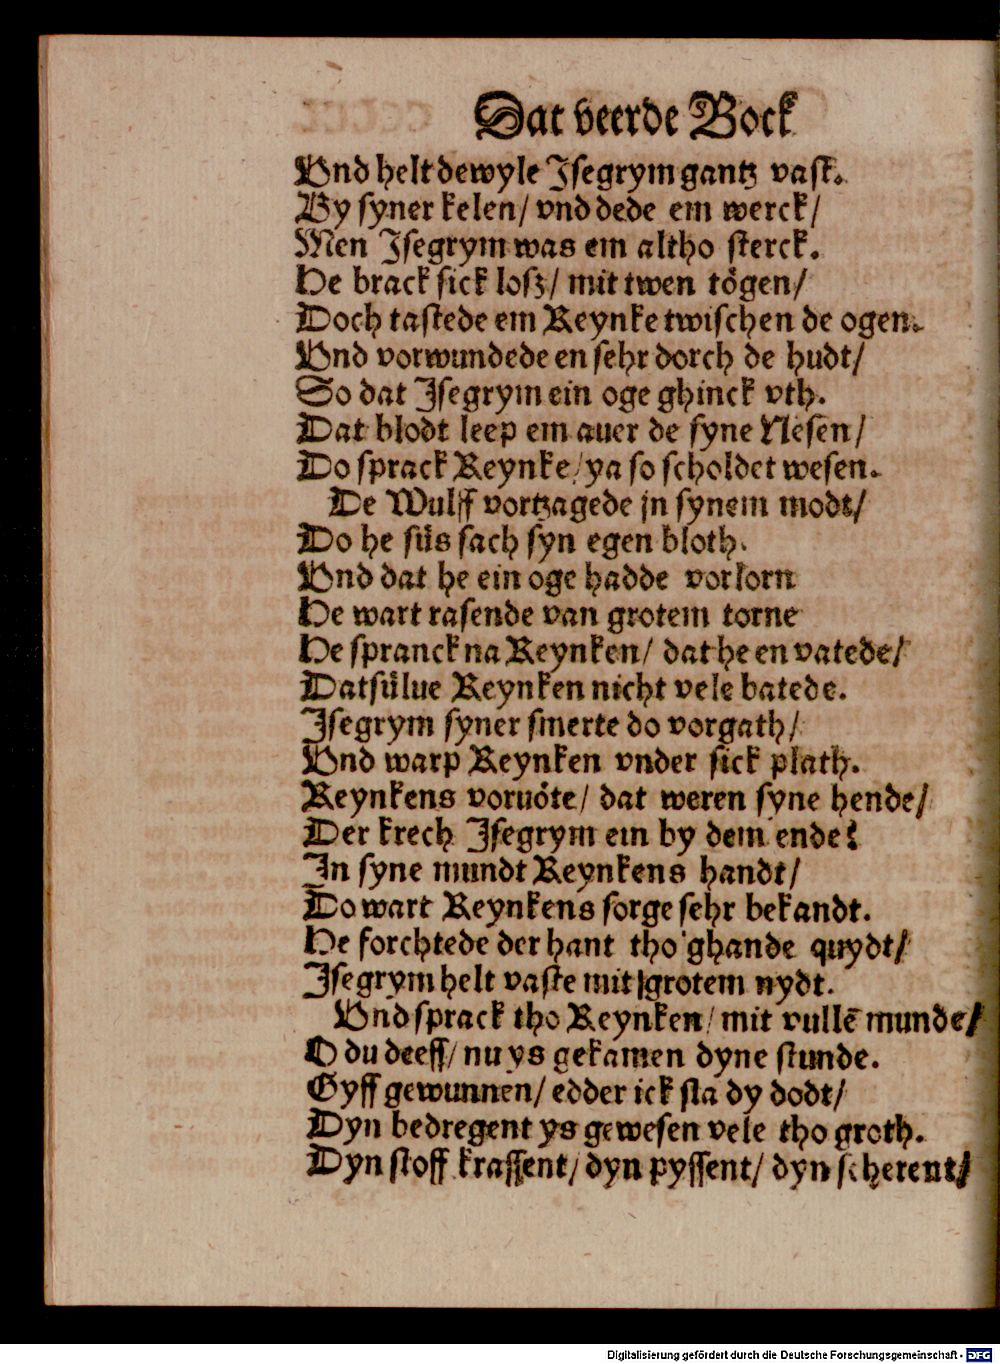 Dat veerde Bock
Vnd helt dewyle Jsegrym gantz vast.
By syner kelen/ vnd dede em werck/
Men Jsegrym was em altho sterck.
He brack sick losz/ mit twen tögen/
Doch tastede em Reynke twischen de ogen.
Vnd vorwundede en sehr dorch de hudt/
So dat Jsegrym ein oge ghinck vth.
Dat blodt leep em auer de syne Nesen/
Do sprack Reynke/ ya so scholdet wesen.
De Wulff vortzagede jn synem modt/
Do he süs sach syn egen bloth.
Vnd dat he ein oge hadde vorlorn
He wart rasende van grotem torne
He spranck na Reynken/ dat he en vatede/
Datsülue Reynken nicht vele batede.
Jsegrym syner smerte do vorgath/
Vnd warp Reynken vnder sick plath.
Reynkens voruöte/ dat weren syne hende/
Der krech Jsegrym ein by dem ende!
In syne mundt Reynkens handt/
Do wart Reynkens sorge sehr bekandt.
He forchtede der hant tho ghande quydt/
Jsegrym helt vaste mit grotem nydt.
Vnd sprack tho Reynken/ mit vullē munde/
O du deeff/ nu ys gekamen dyne stunde.
Gyff gewunnen/ edder ick sla dy dodt/
Dyn bedregent ys gewesen vele tho groth.
Dyn stoff krassent/ dyn pyssent/ dyn scherent/
Digitalisierung gefördert durch die Deutsche Forschungsgemeinschaft - DFG